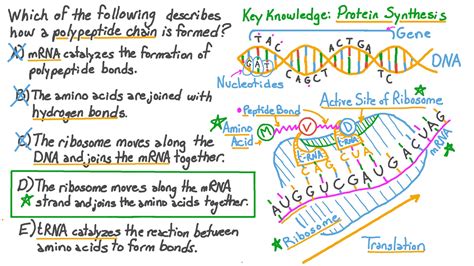 Which of the following describes
how a polypeptide chain is formed?
A) mRNA catalyzes the formation of
polypeptide bonds.
B) The amino acids are joined with
hydrogen bonds.
C) The ribosome moves along the
DNA and joins the mRNA together.
D) The ribosome moves along the mRNA
strand and joins the amino acids together.
E) tRNA catalyzes the reaction between
amino acids to form bonds.
Key Knowledge: Protein Synthesis
Gene
TAC
ACTGA
DNA
GAT
CAGCT
TC
Nucleotides
Peptide Bond
Active Site of Ribosome
Amino
Acid
M
V
D
t-RNA
t-RNA
CAG CUA
AUGGUCGAUGACUAG
mRNA
Ribosome
Translation